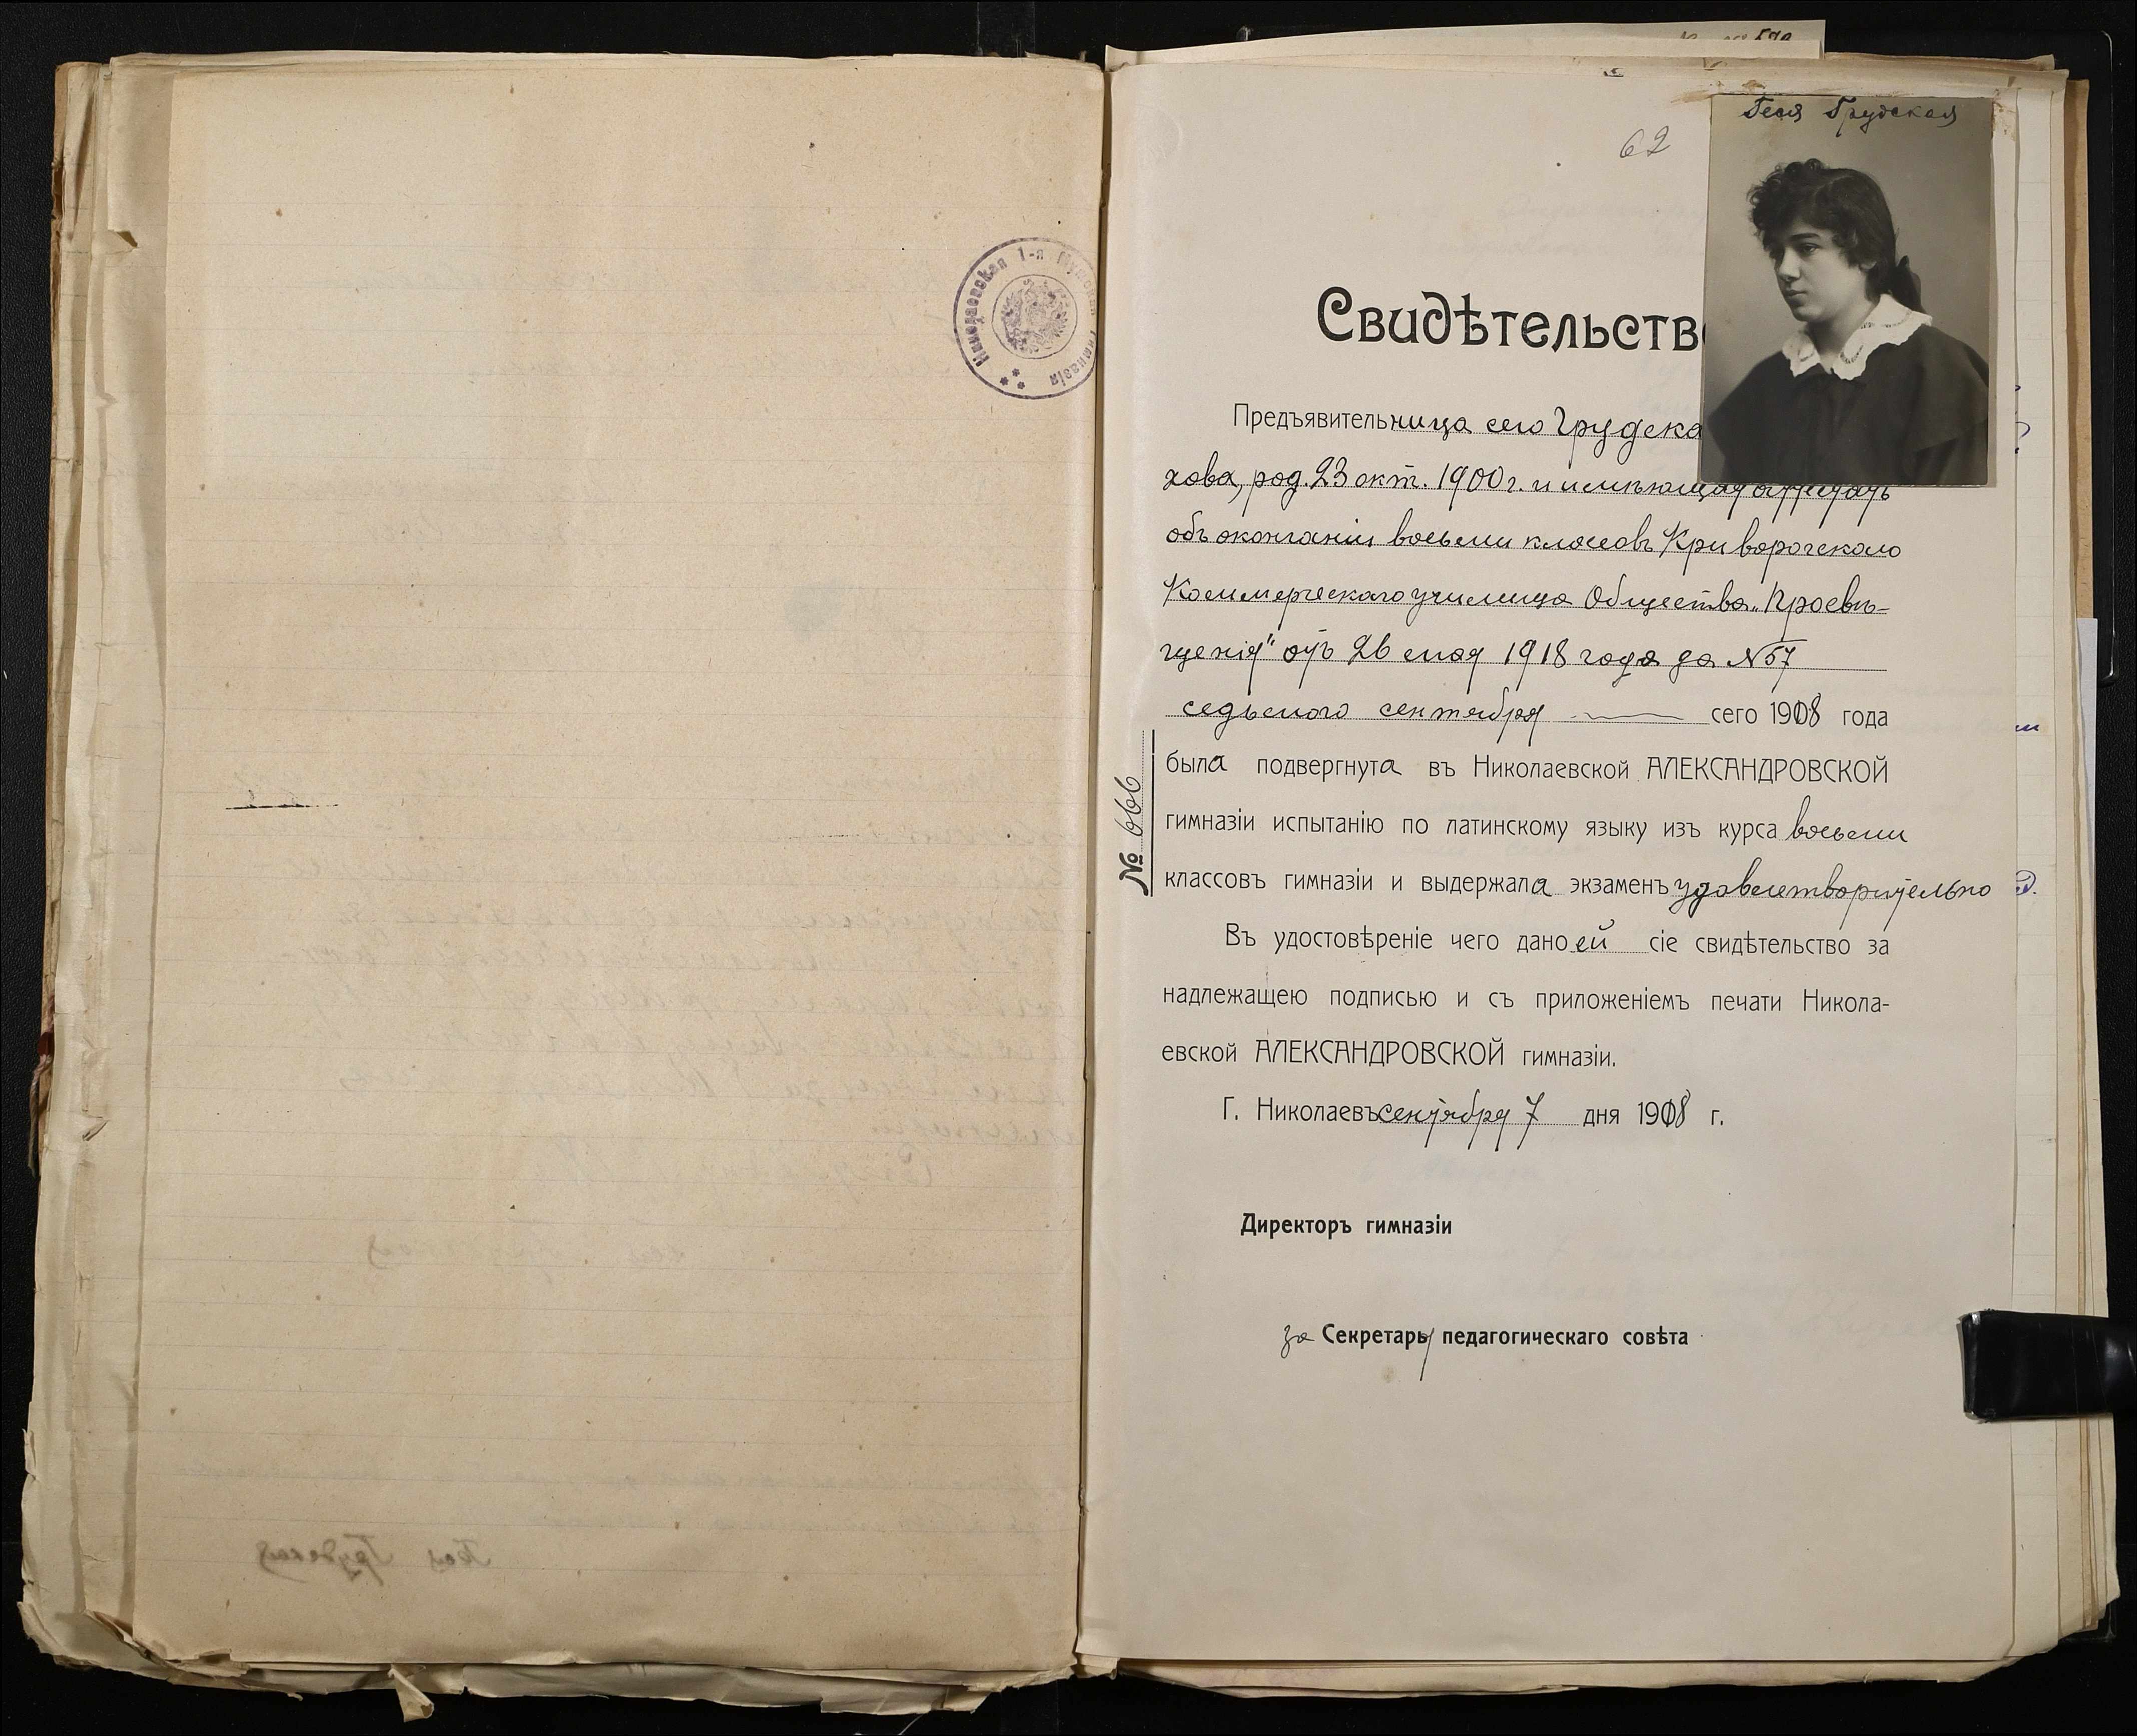 Николаевская 1-я Мужская Гимназія
62
Геся Грудская
Свидѣтельство
Предъявительница сего Грудска
хова, род. 23 окт. 1900 г. и имѣющая аттестатъ
объ окончаніи восьми классовъ Криворогскаго
Коммерческаго училища Общества „Просвѣ-
щенія" отъ 26 мая 1918 года за № 57
седьмого сентября сего 1918 года
была подвергнута въ Николаевской АЛЕКСАНДРОВСКОЙ
гимназіи испытанію по латинскому языку изъ курса восьми
классовъ гимназіи и выдержала экзаменъ удовлетворительно
Въ удостовѣреніе чего дано ей сіе свидѣтельство за
надлежащею подписью и съ приложеніемъ печати Никола-
евской АЛЕКСАНДРОВСКОЙ гимназіи.
Г. Николаевъ сентября 7 дня 1918 г.
Директоръ гимназіи
за Секретаря педагогическаго совѣта
№ 666